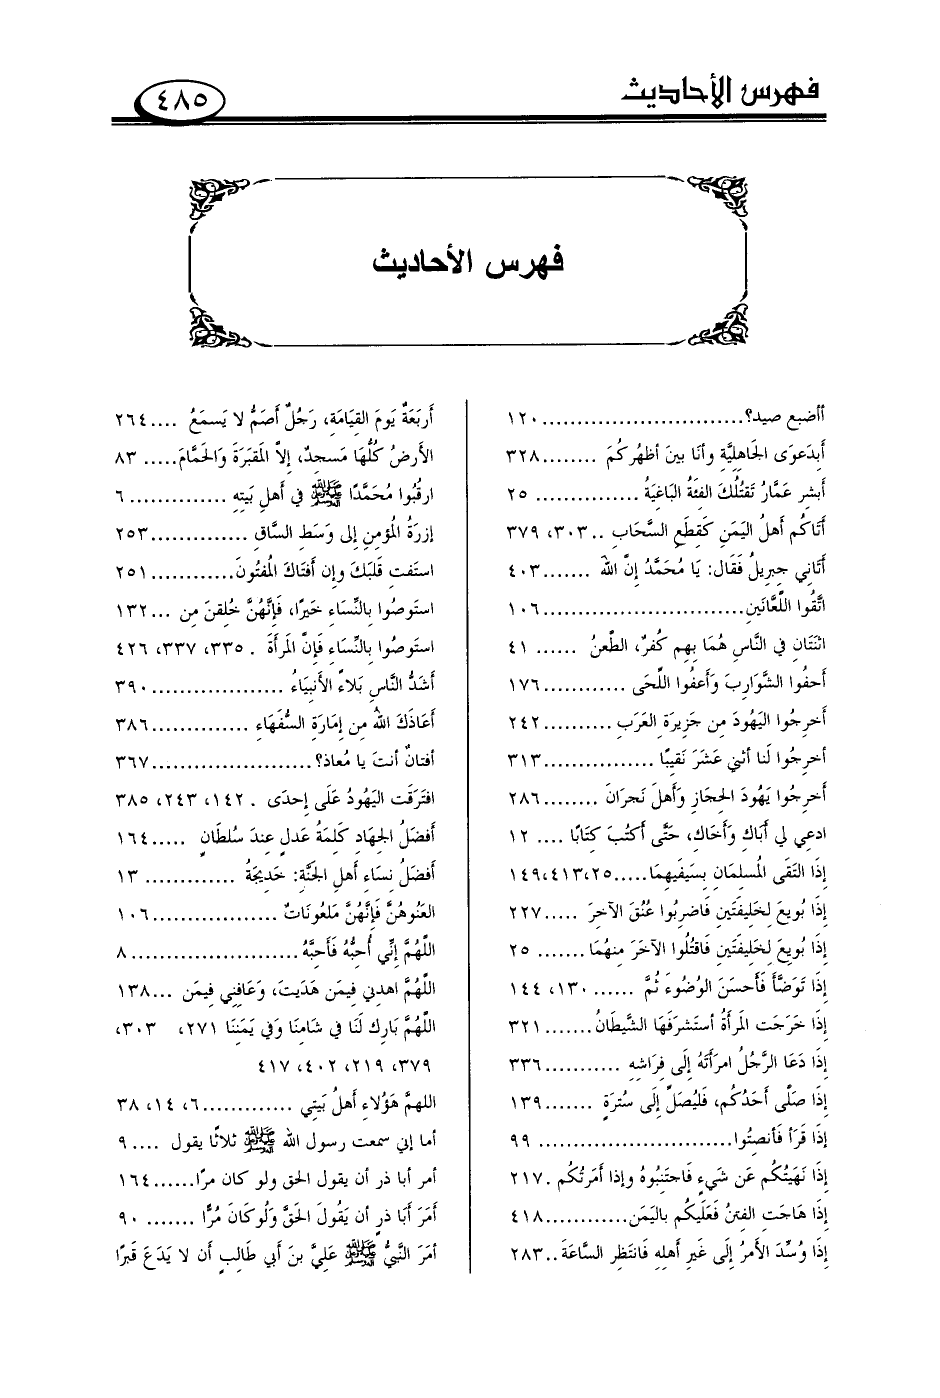 فهرس الأحاديث
٤٨٥
فهرس الأحاديث
أأضبع صيد؟............................ ١٢٠
أَبِدَعوَى الجَاهِلِيَّة وأنَا بينَ أظهُركُم ........٣٢٨
أبشر عَمَّارُ تَقتُلُكَ الفِئَةُ البَاغِيَةُ ............... ٢٥
أتَاكُم أهلُ اليَمَنِ كَقِطَعِ السَّحَابِ ..٣٠٣، ٣٧٩
أَتَاني جِبريلُ فَقَال: يَا مُحَمَّدُ إنَّ اللهَ .......٤٠٣
اتَّقُوا اللَّعَّانَينِ............................١٠٦
اثنَتَان في النَّاسِ هُمَا بِهِم كُفرٌ، الطَّعنُ ...... ٤١
أحفُوا الشَّوَارِبَ وَأعفُوا اللِّحَى ............١٧٦
أخرِجُوا اليَهُودَ مِن جَزِيرَةِ العَرَبِ ..........٢٤٢
أخرِجُوا لَنا أثنَي عَشَرَ نَقِيبًا ................٣١٣
أَخرِجُوا يَهُودَ الحِجَازِ وَأهلَ نَجرَانَ ........٢٨٦
ادعِي لي أَبَاكِ وَأَخَاكِ، حَتَّى أَكتُبَ كِتَابًا .... ١٢
إِذَا التَقَى المُسلِمَانِ بِسَيفَيهِمَا.....٢٥،٤١٣،١٤٩
إِذَا بُويِعَ لِخَلِيفَتَينِ فَاضرِبُوا عُنُقَ الآخِرَ .....٢٢٧
إِذَا بُويِعَ لِخَلِيفَتَينِ فَاقتُلُوا الآخَرَ مِنهُمَا....... ٢٥
إِذَا تَوَضَّأَ فَأَحسَنَ الوُضُوءَ ثُمَّ ......١٣٠، ١٤٤
إِذَا خَرَجَت المَرأَةُ أستَشرَفَهَا الشَّيطَانُ.......٣٢١
إِذَا دَعَا الرَّجُلُ امرَأَتَهُ إِلَى فِرَاشِهِ ...........٣٣٦
إِذَا صَلَّى أَحَدُكُم، فَليُصَلِّ إِلَى سُترَةٍ .......١٣٩
إِذَا قَرَأ فَأنصِتُوا............................ ٩٩
إِذَا نَهَيتُكُم عَن شَيءٍ فَاجتَنِبُوهُ وإذا أمَرتُكُم .٢١٧
إِذَا هَاجَت الفِتَنُ فَعَلَيكُم باليَمَنِ............٤١٨
إِذَا وُسِّدَ الأمرُ إِلَى غَيرِ أهلِهِ فَانتَظِرِ السَّاعَةَ..٢٨٣
أربَعَةٌ يَومَ القِيَامَةِ، رَجُلٌ أصَمُّ لا يَسمَعُ ....٢٦٤
الأرضُ كُلُّهَا مَسجِدٌ، إِلاَّ المَقبَرَةَ وَالحَمَّامَ..... ٨٣
ارقُبُوا مُحَمَّدًا ﷺ في أهلِ بَيتِهِ .............. ٦
إزرَةُ المُؤمِنِ إلى وَسَطِ السَّاقِ ..............٢٥٣
استَفتِ قَلبَكَ وإن أفتَاكَ المُفتُونَ............٢٥١
استَوصُوا بِالنِّسَاءِ خَيرًا، فَإِنَّهُنَّ خُلِقنَ مِن ...١٣٢
استَوصُوا بِالنِّسَاءِ فَإِنَّ المَرأَةَ .٣٣٥، ٣٣٧، ٤٢٦
أشَدُّ النَّاسِ بَلاءً الأنبِيَاءُ ....................٣٩٠
أعَاذَكَ اللهُ مِن إمَارَةِ السُّفَهَاءِ ..............٣٨٦
أفتانٌ أنتَ يا مُعاذ؟........................٣٦٧
افتَرَقَت اليَهُودُ عَلَى إحدَى .١٤٢، ٢٤٣، ٣٨٥
أفضَلُ الجِهَادِ كَلِمَةُ عَدلٍ عِندَ سُلطَانٍ .....١٦٤
أَفضَلُ نِسَاءِ أهلِ الجَنَّةِ: خَدِيجَةُ ............. ١٣
العَنُوهُنَّ فَإِنَّهُنَّ مَلعُونَاتٌ ...................١٠٦
اللَّهُمَّ إِنِّي أُحِبُّهُ فَأَحِبَّهُ.......................... ٨
اللَّهُمَّ اهدِنِي فِيمَن هَدَيتَ، وَعَافِنِي فِيمَن ...١٣٨
اللَّهُمَّ بَارِك لَنَا في شَامِنَا وَفي يَمَنِنَا ٢٧١، ٣٠٣،
٣٧٩، ٢١٩، ٤٠٢، ٤١٧
اللهمَّ هَؤُلاءِ أهلُ بَيتِي .............٦، ١٤، ٣٨
أما إني سمعت رسول الله ﷺ ثلاثًا يقول .... ٩
أمر أبا ذر أن يقول الحق ولو كان مرًا......١٦٤
أمَرَ أَبَا ذَرٍ أن يَقُولَ الحَقَّ وَلَو كَانَ مُرًّا ....... ٩٠
أمَرَ النَّبِيُّ ﷺ عَلِيَّ بنَ أَبي طَالِبٍ أَن لا يَدَعَ قَبرًا